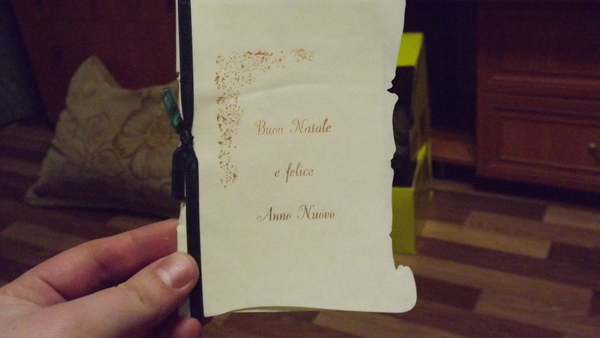 Buon Natale
e felice
Anno Nuovo